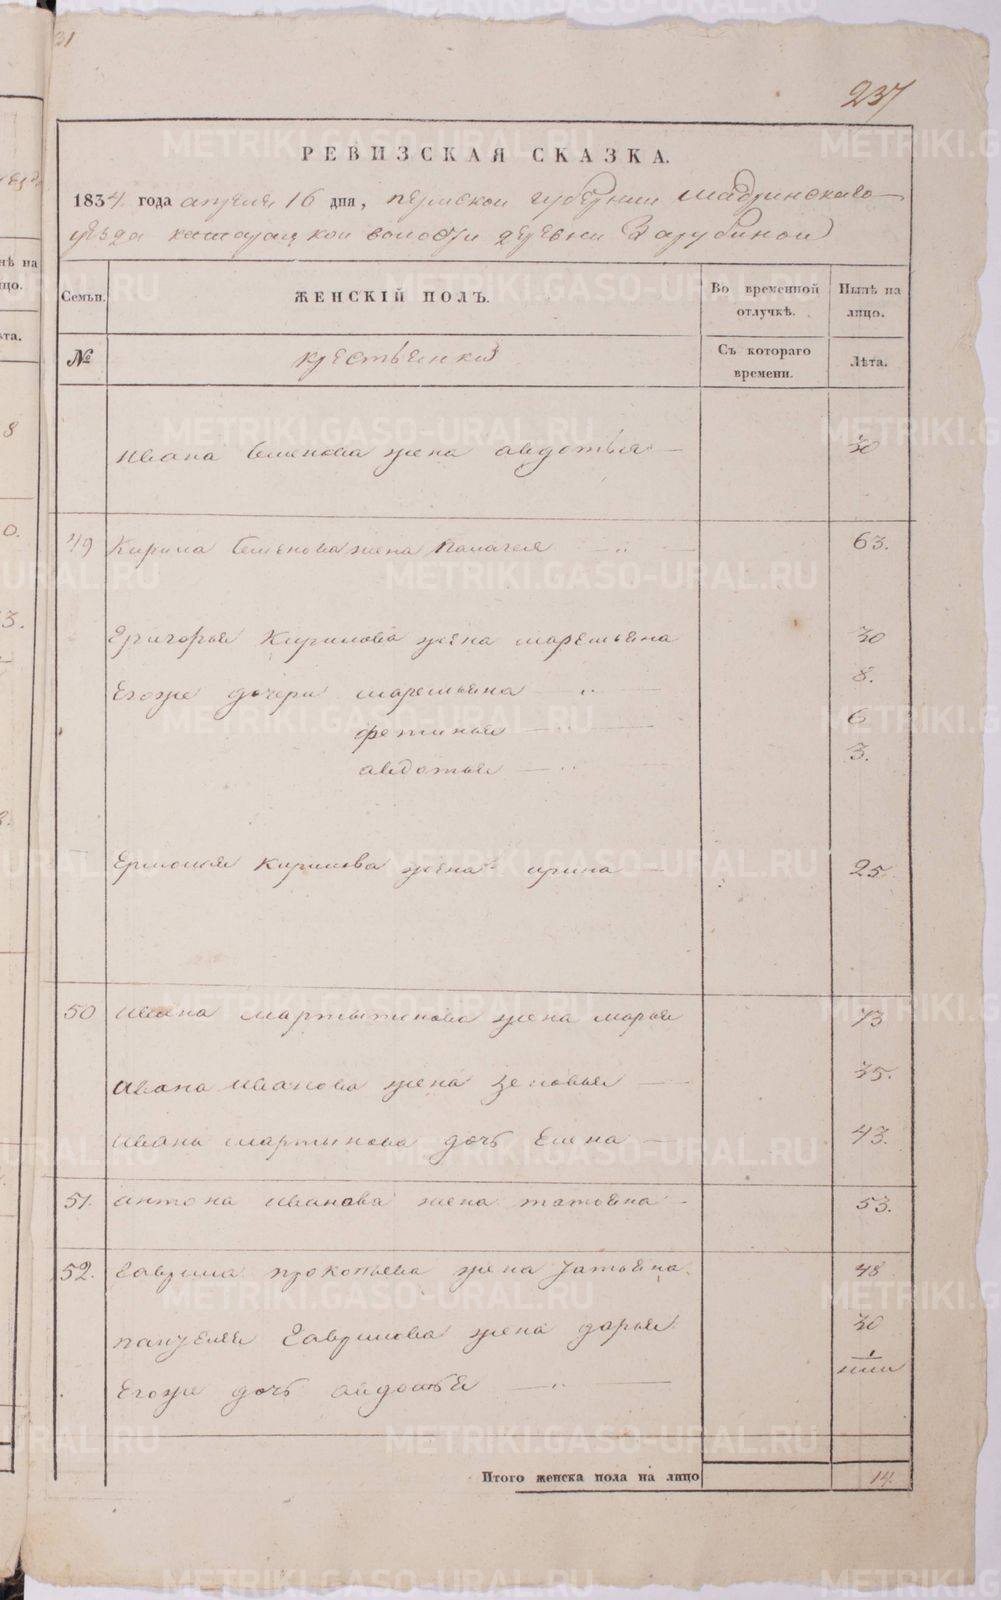 31
237
РЕВИЗСКАЯ СКАЗКА.
1834 года апреля 16 дня, пермской губернии шадринскаго
уезда каширской волости деревни Зарубиной
Семьи. ЖЕНСКІЙ ПОЛЪ. Во временной отлучкѣ. Нынѣ на лицо.
№ крестьянки Съ котораго времени. Лѣта.
ивана семенова жена авдотья 30
49 Кирила семенова жена Палагея 63.
Григорья Кирилова жена маремьяна 30
Егоже дочери маремьяна 8.
фетинья 6
авдотья 3.
Ермолая Кирилова жена ирина 25.
50 ивана мартынова жена марья 73
ивана иванова жена зеновья 35.
ивана мартынова дочь Елена 43.
51. антона иванова жена татьяна 53.
52. гаврила прокопьева жена татьяна 48
пантелея гаврилова жена дарья 30
Егоже дочь авдотья
Итого женска пола на лицо 14.
METRIKI.GASO-URAL.RU